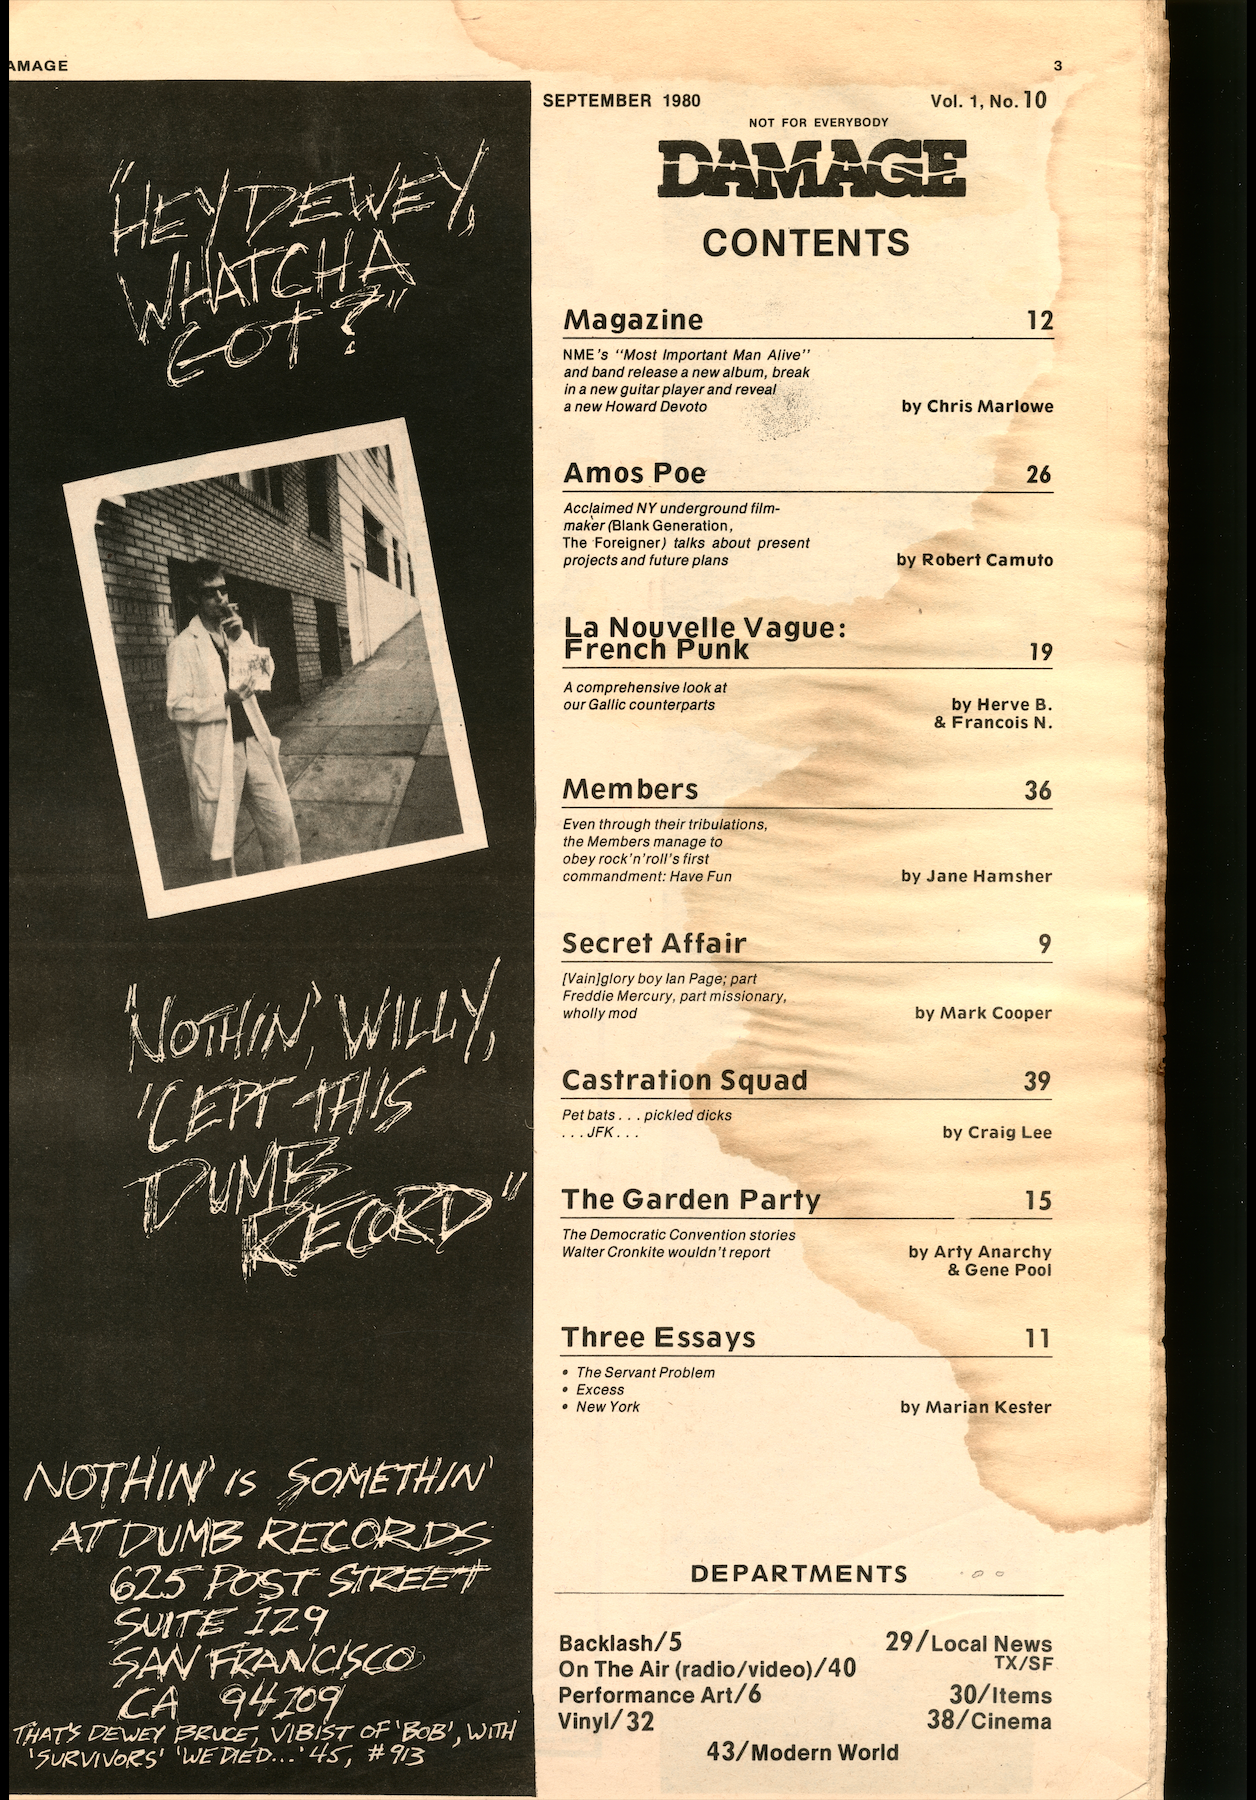 AMAGE
3
"HEY DEWEY,
WHATCHA
GOT?"
"NOTHIN', WILLY,
'CEPT THIS
DUMB
RECORD"
NOTHIN' IS SOMETHIN'
AT DUMB RECORDS
625 POST STREET
SUITE 129
SAN FRANCISCO
CA 94109
THAT'S DEWEY BRUCE, VIBIST OF 'BOB', WITH
'SURVIVORS' 'WE DIED...' 45, #913
SEPTEMBER 1980
Vol. 1, No. 10
NOT FOR EVERYBODY
DAMAGE
CONTENTS
Magazine 12
NME's "Most Important Man Alive"
and band release a new album, break
in a new guitar player and reveal
a new Howard Devoto
by Chris Marlowe
Amos Poe 26
Acclaimed NY underground film-
maker (Blank Generation,
The Foreigner) talks about present
projects and future plans
by Robert Camuto
La Nouvelle Vague:
French Punk 19
A comprehensive look at
our Gallic counterparts
by Herve B.
& Francois N.
Members 36
Even through their tribulations,
the Members manage to
obey rock'n'roll's first
commandment: Have Fun
by Jane Hamsher
Secret Affair 9
[Vain]glory boy Ian Page; part
Freddie Mercury, part missionary,
wholly mod
by Mark Cooper
Castration Squad 39
Pet bats . . . pickled dicks
. . . JFK . . .
by Craig Lee
The Garden Party 15
The Democratic Convention stories
Walter Cronkite wouldn't report
by Arty Anarchy
& Gene Pool
Three Essays 11
• The Servant Problem
• Excess
• New York
by Marian Kester
DEPARTMENTS
Backlash/5
On The Air (radio/video)/40
Performance Art/6
Vinyl/32
29/Local News
TX/SF
30/Items
38/Cinema
43/Modern World